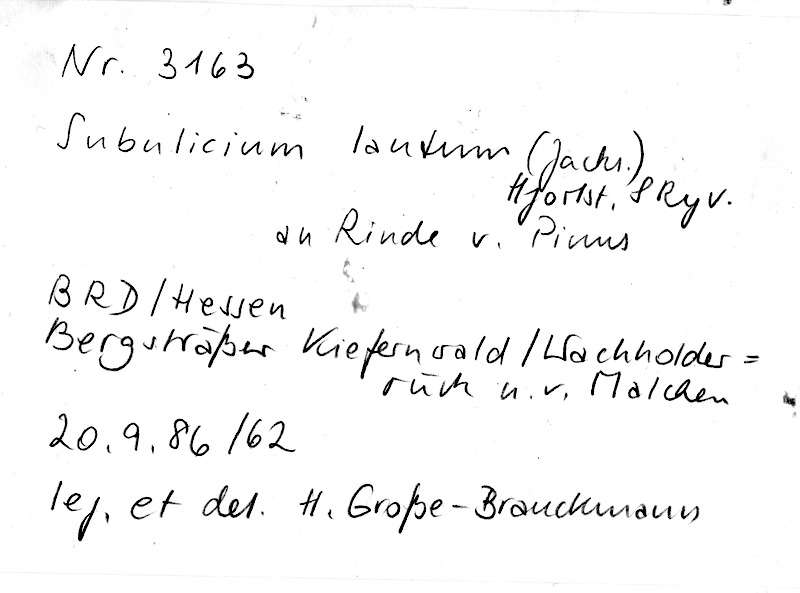 Nr. 3163
Subulicium lautum (Jacks.)
Hjortst. & Ryv.
an Rinde v. Pinus
BRD/Hessen
Bergsträßer Kiefernwald/Wachholder=
rück n.v. Malchen
20.9.86/62
leg. et det. H. Große-Brauckmann